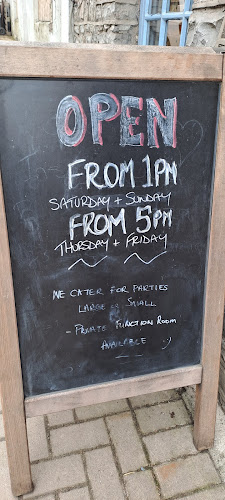 OPEN
FROM 1PM
SATURDAY + SUNDAY
FROM 5PM
THURSDAY + FRIDAY
WE CATER FOR PARTIES
LARGE or SMALL
- PRIVATE FUNCTION ROOM
AVAILABLE :)